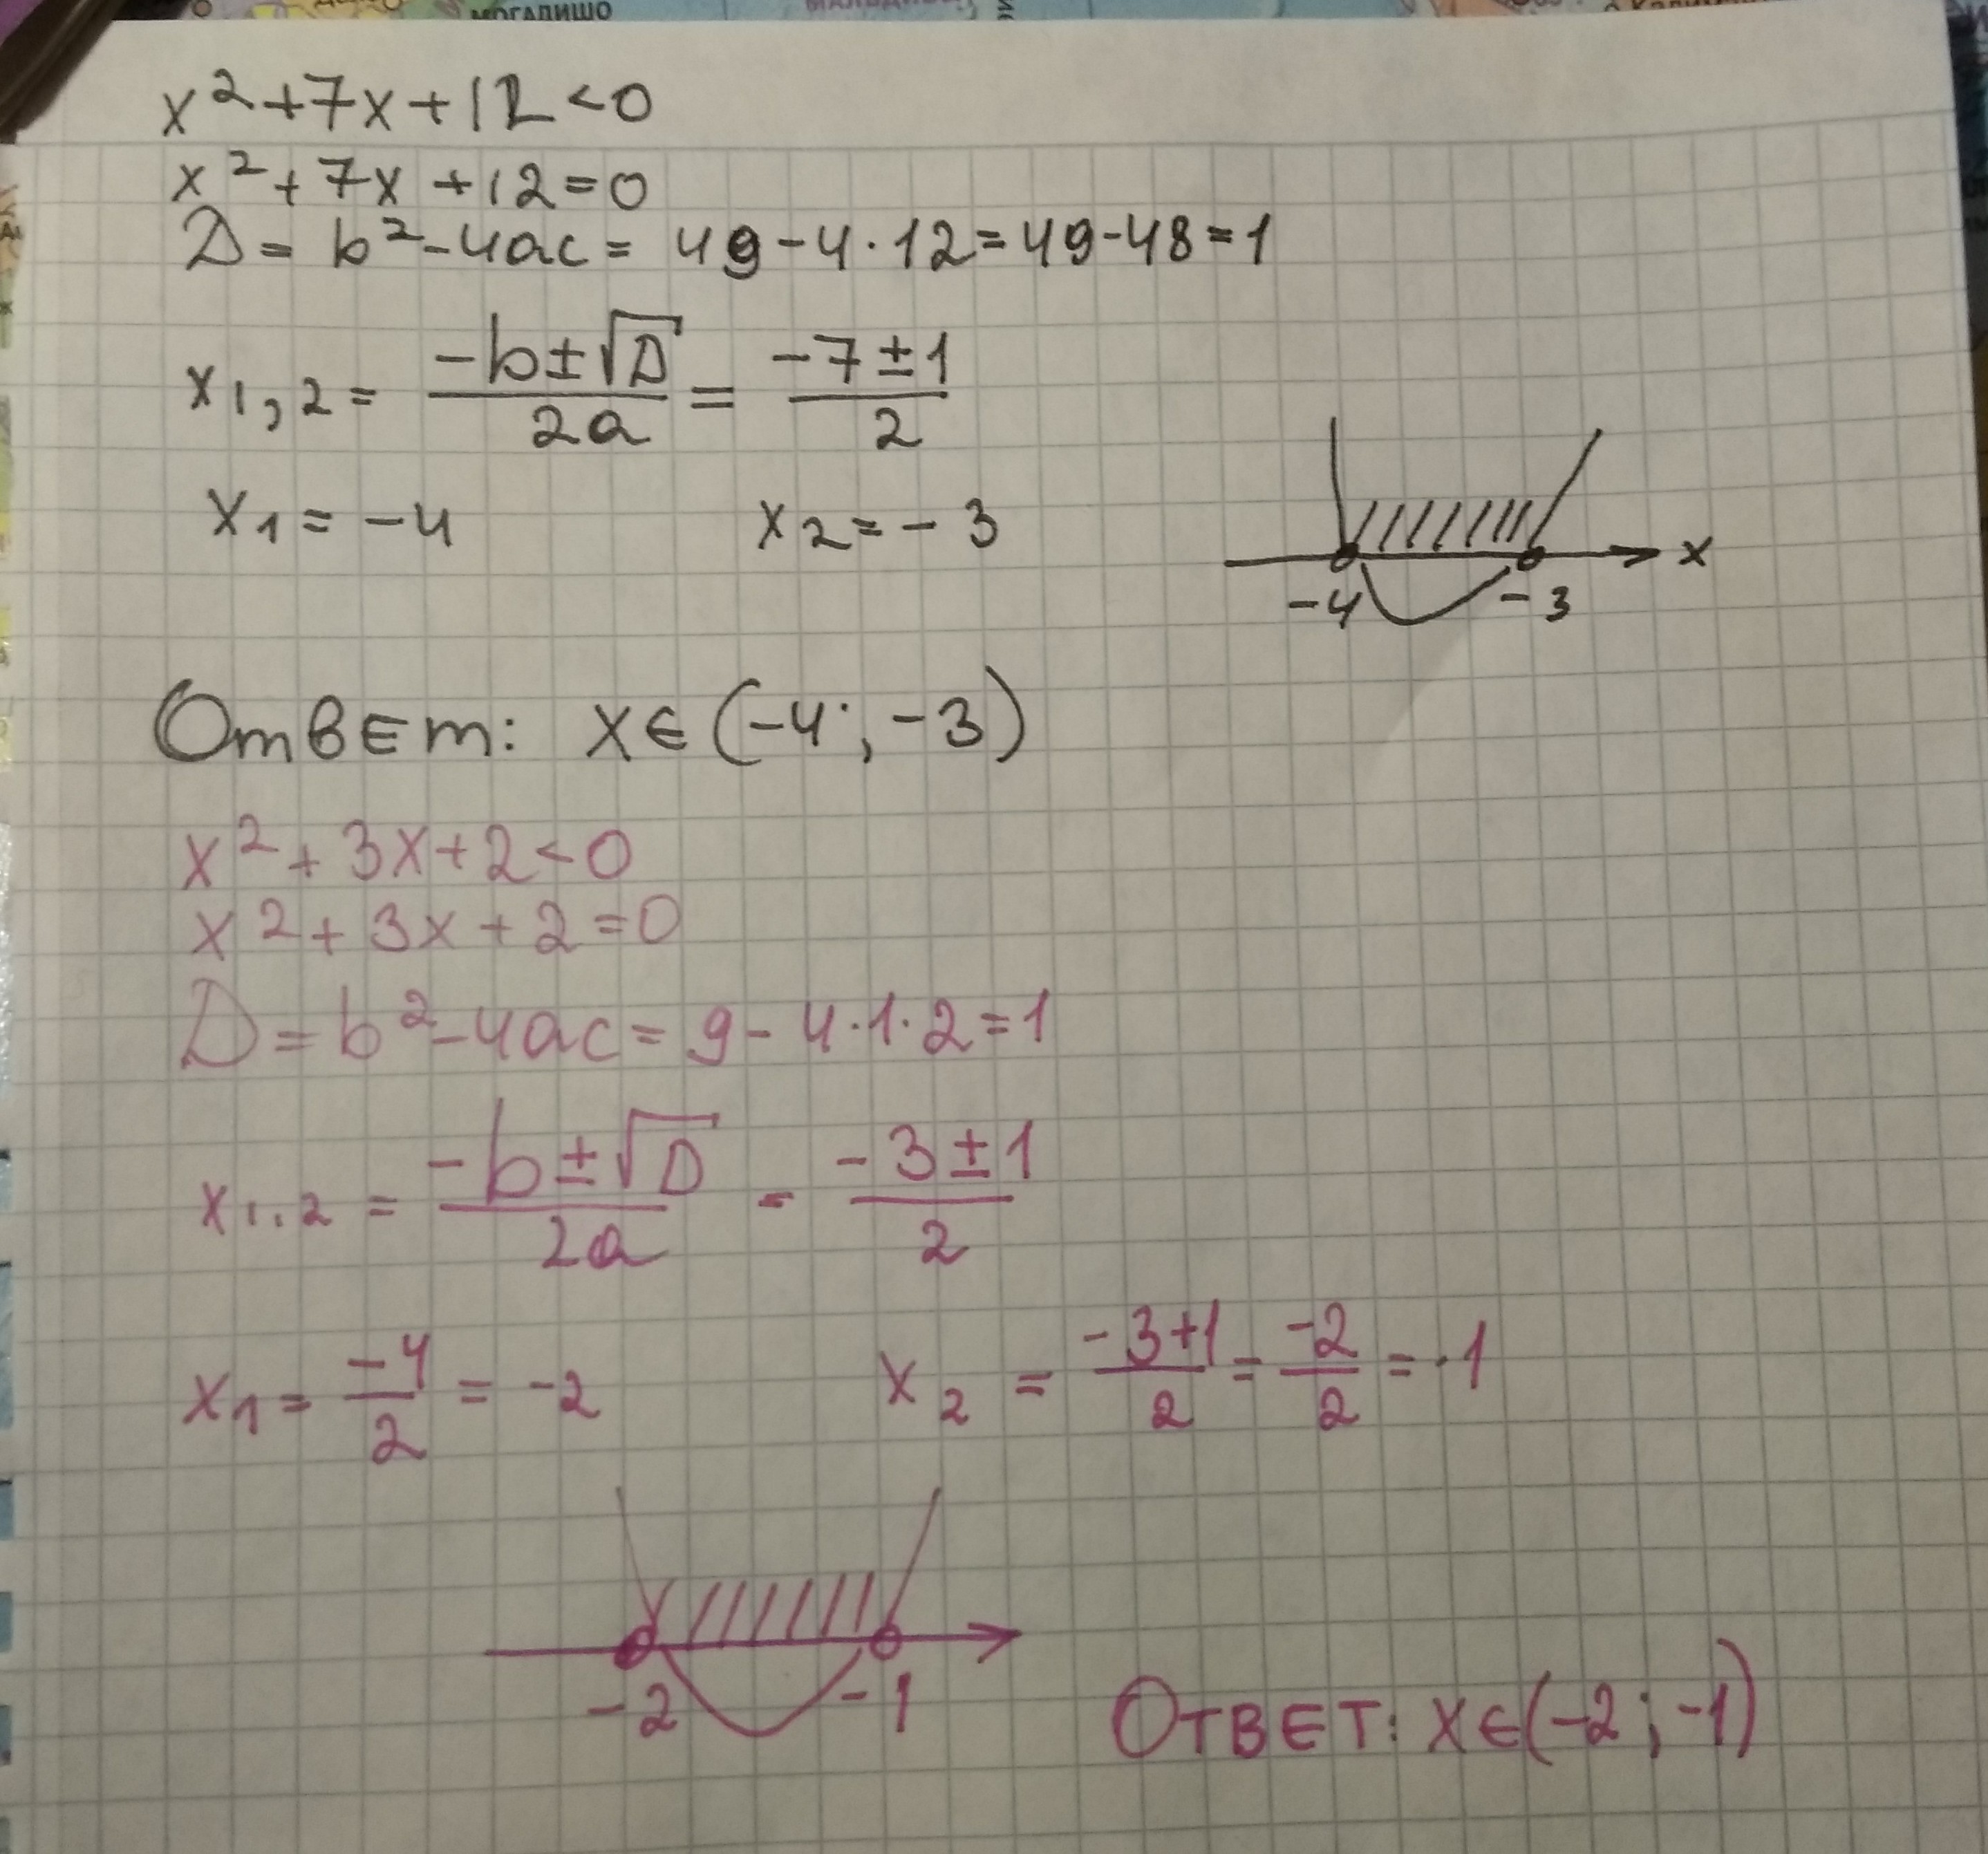 МОГАДИШО
x²+7x+12<0
x²+7x+12=0
D=b²-4ac=49-4·12=49-48=1
x1,2=(-b±√D)/2a=(-7±1)/2
x1=-4 x2=-3
-4 -3 x
Ответ: x∈(-4;-3)
x²+3x+2<0
x²+3x+2=0
D=b²-4ac=9-4·1·2=1
x1,2=(-b±√D)/2a=(-3±1)/2
x1=-4/2=-2 x2=(-3+1)/2=-2/2=-1
-2 -1
ОТВЕТ: x∈(-2;-1)